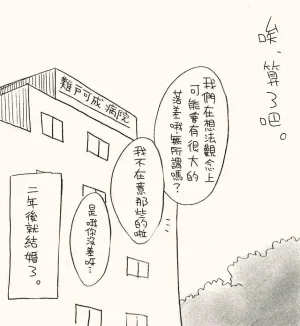 唉、算了吧。
難戶可成病院
我們在想法觀念上
可能會有很大的
落差哦無所謂嗎？
我不在意那些的啦
是哦你沒差呀…
二年後就結婚了。